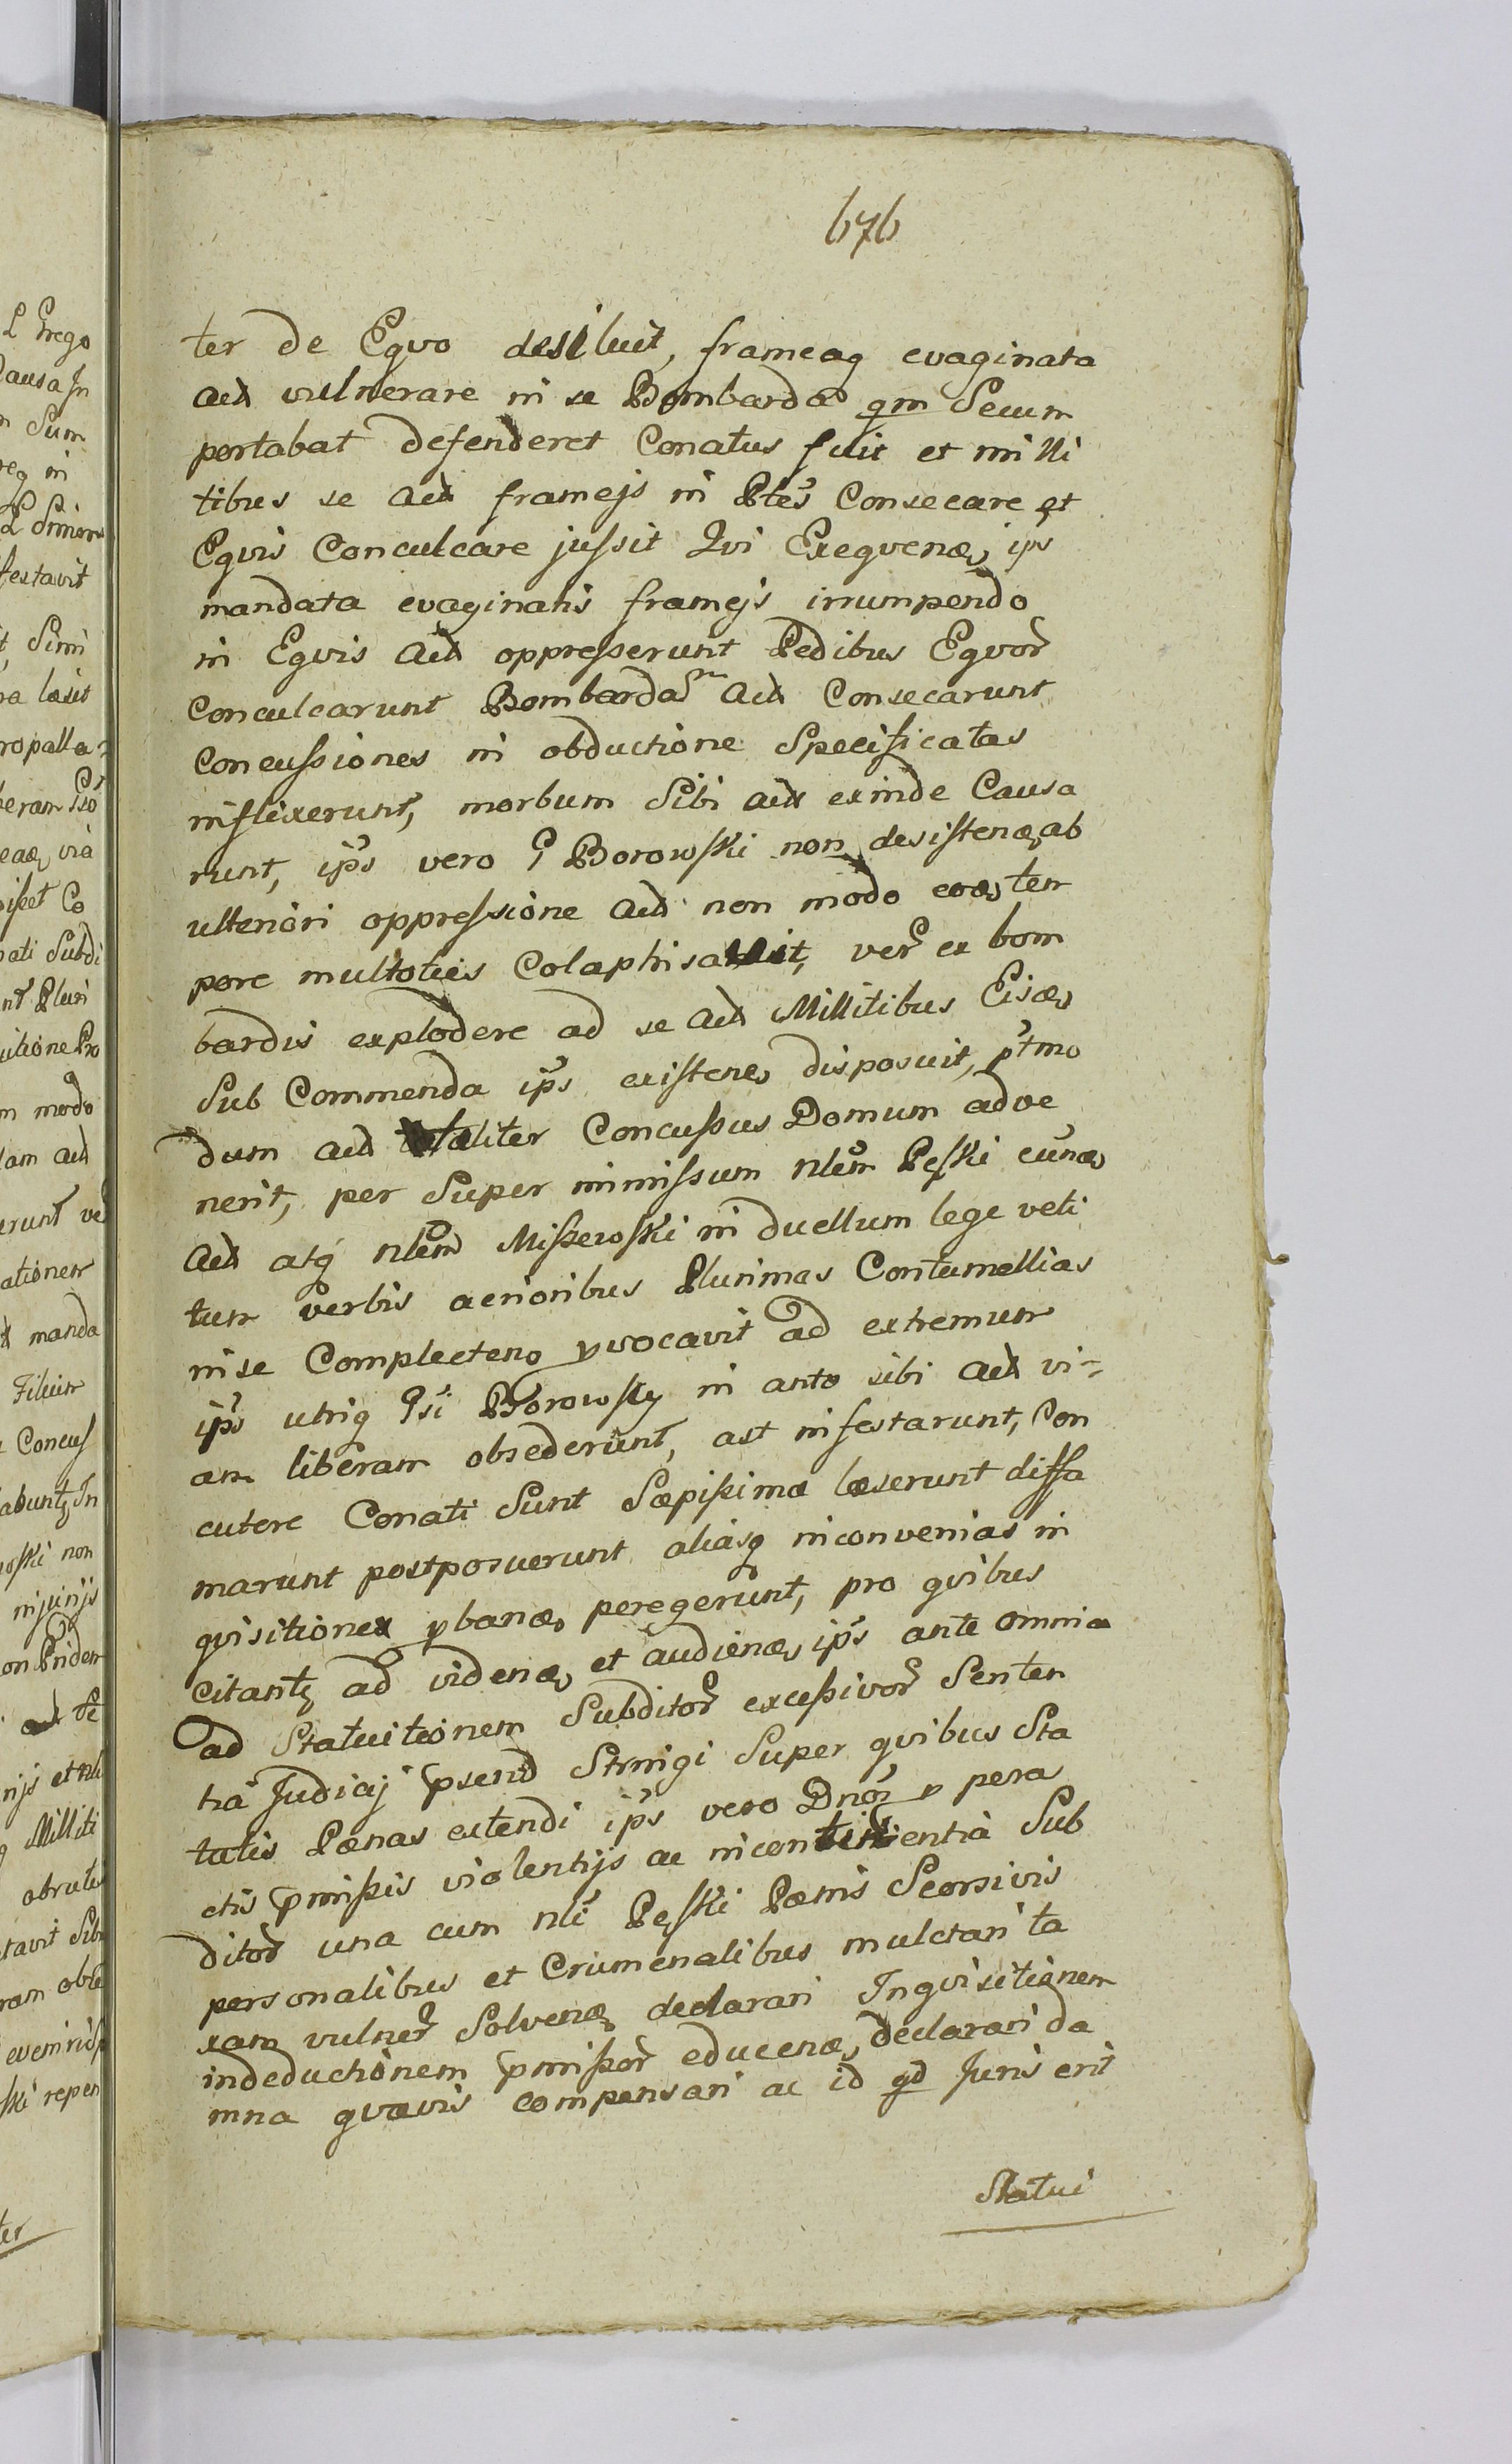 676
ter de Eqvo desiluit, frameaq evaginata
act vulnerare ni se Bombarda qm Secum
portabat defenderet Conatus fuit et milli
tibus se act framejs in Ptes Consecare et
Eqvis Conculcare jussit Qvi Exeqvenæ ips
mandata evaginatis framejs irrumpendo
in Eqvis act oppresserunt Pedibus Eqvor
conculcarunt Bombardam act Consecarunt
concussiones in obductione Specificatas
inflixerunt, morbum Sibi act exinde Causa
runt, ips vero G Borowski non desistenæ ab
ulteriori oppressione act non modo eoæ tem
pore multoties Colaphisavit, ver ex bom
bardis explodere ad se act Millitibus Eisæ
Sub Commenda ips existene disposuit, ptmo
dum act totaliter Concussus Domum adve
nerit, per Super immissum Nlem Pęski eunæ
act atq Nlem Miszewski in duellum lege veti
tum verbis acrioribus Plurimas Contumellias
in se Complecten pvocavit ad extremum
ips utriq Gsi Borowsky in anto sibi act vi-
am liberam obsederunt, ast infestarunt, Con
cutere Conati Sunt Sæpissime læserunt diffa
marunt postposuerunt aliasq inconvenias in
qvisitione pbanæ peregerunt, pro qvibus
citant ad videnæ et audienæ ips ante omnia
ad Statuitionem Subditor excessivor Senten
tia Judicij psend Stringi Super qvibus Sta
tutis Pænas extendi ips vero Dnor p pera
ctis pmissis violentijs ac incontinentia Sub
ditor una cum Nli Pęski Pænis Seorsivis
personalibus et Criminalibus mulctari ta
xam vulner Solvenæ declarari Inqvisitionem
in deductionem pmissor educenæ declarari da
mna qvævis compensari ac id qd Juris erit
Statui